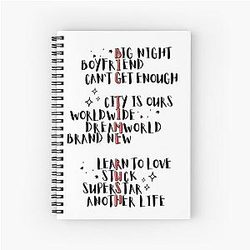 BIG NIGHT
BOYFRIEND
CAN'T GET ENOUGH
CITY IS OURS
WORLDWIDE
DREAMWORLD
BRAND NEW
LEARN TO LOVE
STUCK
SUPERSTAR
ANOTHER LIFE